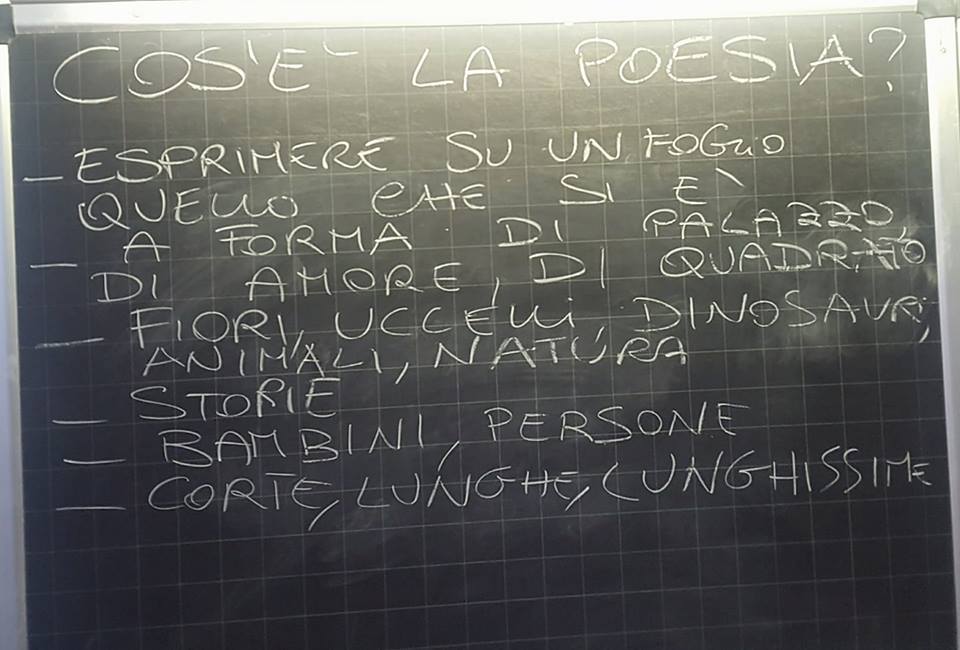 COS'E` LA POESIA?
- ESPRIMERE SU UN FOGLIO
QUELLO CHE SI E`
- A FORMA DI PALAZZO,
DI AMORE, DI QUADRATO
- FIORI, UCCELLI, DINOSAURI,
ANIMALI, NATURA
- STORIE
- BAMBINI, PERSONE
- CORTE, LUNGHE, LUNGHISSIME